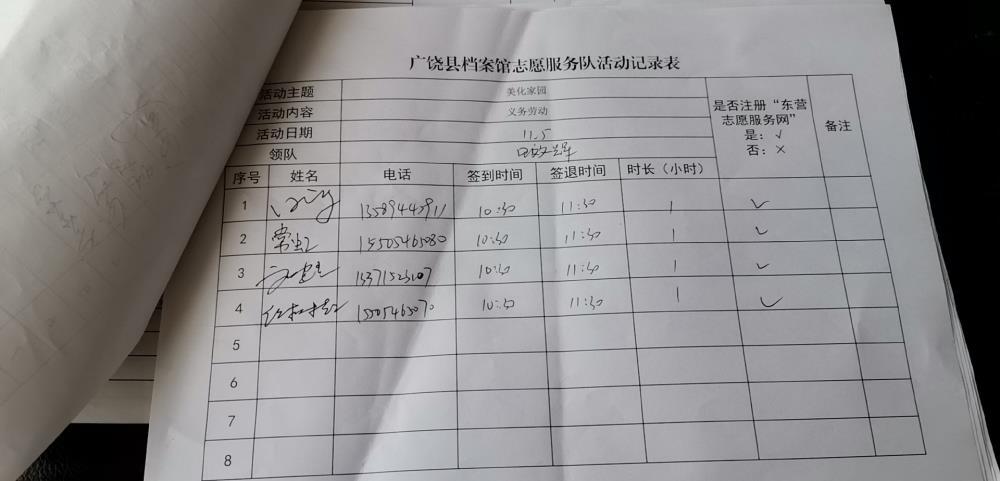 广饶县档案馆志愿服务队活动记录表
活动主题 美化家园
活动内容 义务劳动
活动日期 11.5
领队
是否注册“东营志愿服务网”
是：√
否：×
备注
序号 姓名 电话 签到时间 签退时间 时长（小时）
1 10:30 11:30 1 ✓
2 常虹 15505465080 10:30 11:30 1 ✓
3 10:30 11:30 1 ✓
4 10:30 11:30 1 ✓
5
6
7
8